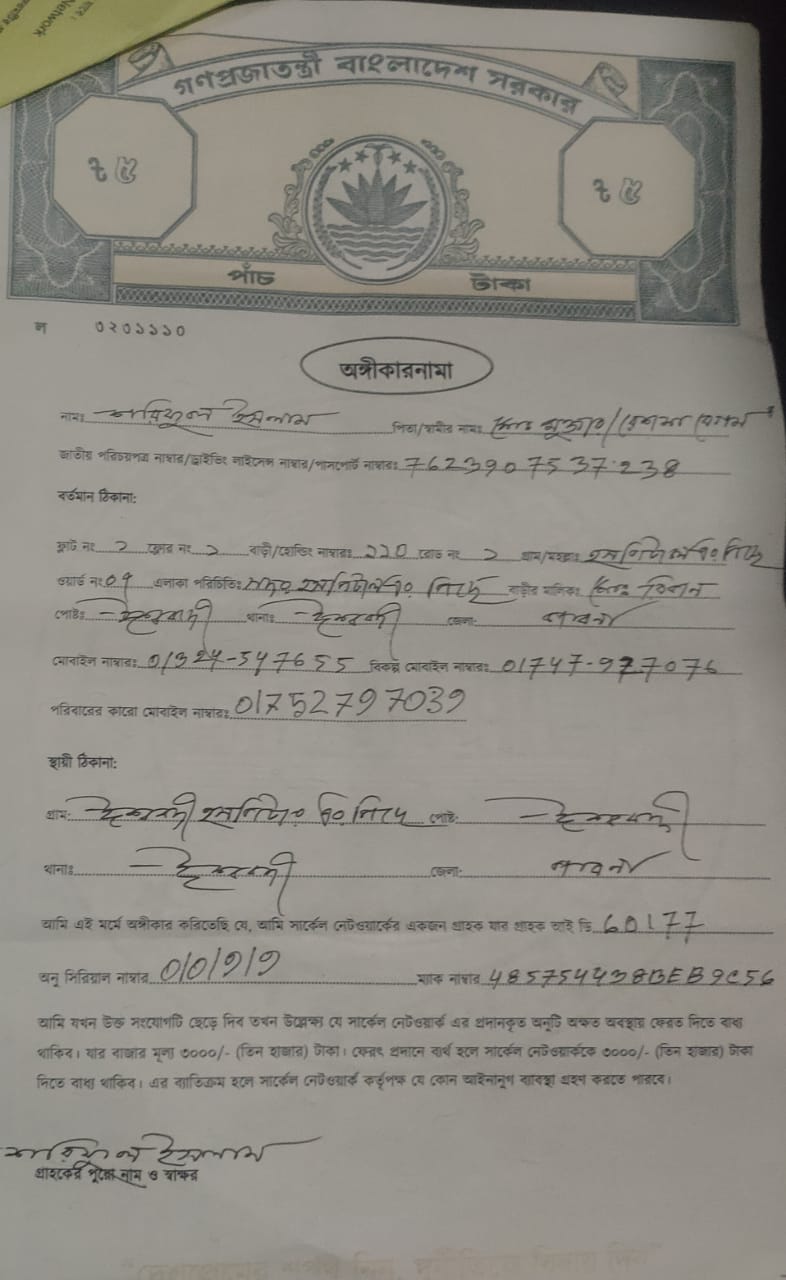 Network
গণপ্রজাতন্ত্রী বাংলাদেশ সরকার
৳ ৫ ৳ ৫
পাঁচ টাকা
ল ০২০১১১০
অঙ্গীকারনামা
নামঃ আরিফুল ইসলাম পিতা/স্বামীর নামঃ মোঃ
জাতীয় পরিচয়পত্র নাম্বার/ড্রাইভিং লাইসেন্স নাম্বার/পাসপোর্ট নাম্বারঃ 7623907537238
বর্তমান ঠিকানা:
ফ্লাট নং ২ ফ্লোর নং ২ বাড়ী/হোল্ডিং নাম্বারঃ ২২0 রোড নং ২ গ্রাম/মহল্লাঃ
ওয়ার্ড নং 0৭ এলাকা পরিচিতিঃ বাড়ীর মালিকঃ মোঃ
পোষ্টঃ ঈশ্বরদী থানাঃ ঈশ্বরদী জেলা: পাবনা
মোবাইল নাম্বারঃ 01324-547655 বিকল্প মোবাইল নাম্বারঃ 01747-927076
পরিবারের কারো মোবাইল নাম্বারঃ 01752797039
স্থায়ী ঠিকানা:
গ্রাম: ঈশ্বরদী পোষ্ট: ঈশ্বরদী
থানাঃ ঈশ্বরদী জেলা: পাবনা
আমি এই মর্মে অঙ্গীকার করিতেছি যে, আমি সার্কেল নেটওয়ার্কের একজন গ্রাহক যার গ্রাহক আই ডি 60177
অনু সিরিয়াল নাম্বার ম্যাক নাম্বার 485754438BEB9C56
আমি যখন উক্ত সংযোগটি ছেড়ে দিব তখন উল্লেক্ষ্য যে সার্কেল নেটওয়ার্ক এর প্রদানকৃত অনুটি অক্ষত অবস্থায় ফেরত দিতে বাধ্য
থাকিব। যার বাজার মূল্য ৩০০০/- (তিন হাজার) টাকা। ফেরৎ প্রদানে ব্যর্থ হলে সার্কেল নেটওয়ার্ককে ৩০০০/- (তিন হাজার) টাকা
দিতে বাধ্য থাকিব। এর ব্যতিক্রম হলে সার্কেল নেটওয়ার্ক কর্তৃপক্ষ যে কোন আইনানুগ ব্যবস্থা গ্রহণ করতে পারবে।
আরিফুল ইসলাম
গ্রাহকের পুরো নাম ও স্বাক্ষর